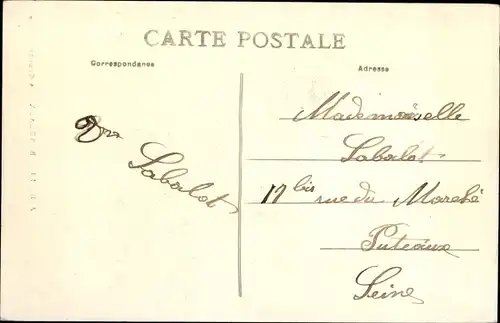 CARTE POSTALE
Correspondance
Adresse
Sabalot
Mademoiselle
Sabalot
17 bis rue du Marché
Puteaux
Seine